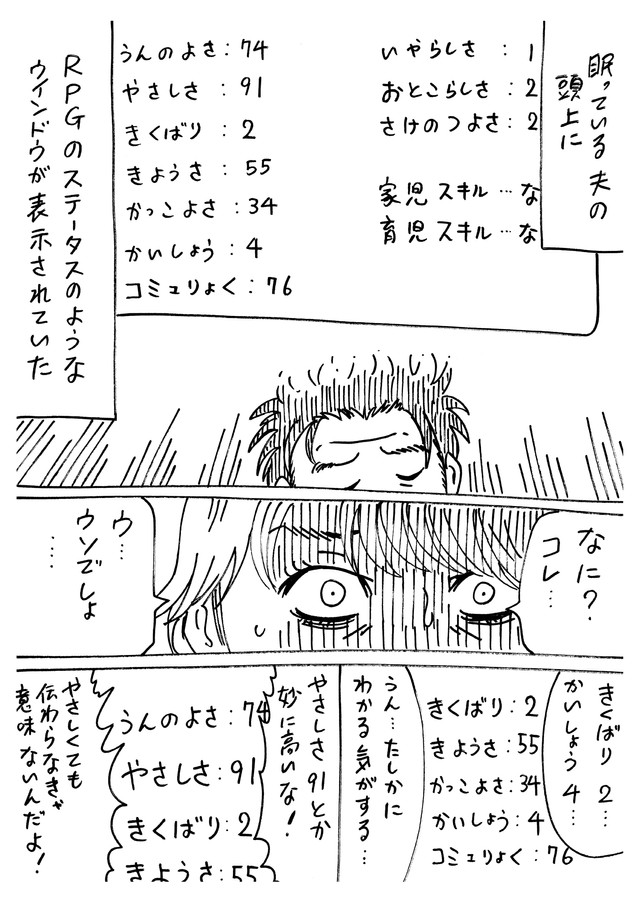 眠っている夫の
頭上に
いやらしさ : 1
おとこらしさ : 2
さけのつよさ : 2
家児スキル…な
育児スキル…な
うんのよさ : 74
やさしさ : 91
きくばり : 2
きようさ : 55
かっこよさ : 34
かいしょう : 4
コミュりょく : 76
RPGのステータスのような
ウインドウが表示されていた
なに?
コレ…
ウ…
ウソでしょ
……
きくばり 2…
かいしょう 4…
きくばり : 2
きようさ : 55
かっこよさ : 34
かいしょう : 4
コミュりょく : 76
うん…たしかに
わかる気がする…
やさしさ 91とか
妙に高いな!
うんのよさ : 74
やさしさ : 91
きくばり : 2
きようさ : 55
やさしくても
伝わらなきゃ
意味ないんだよ!